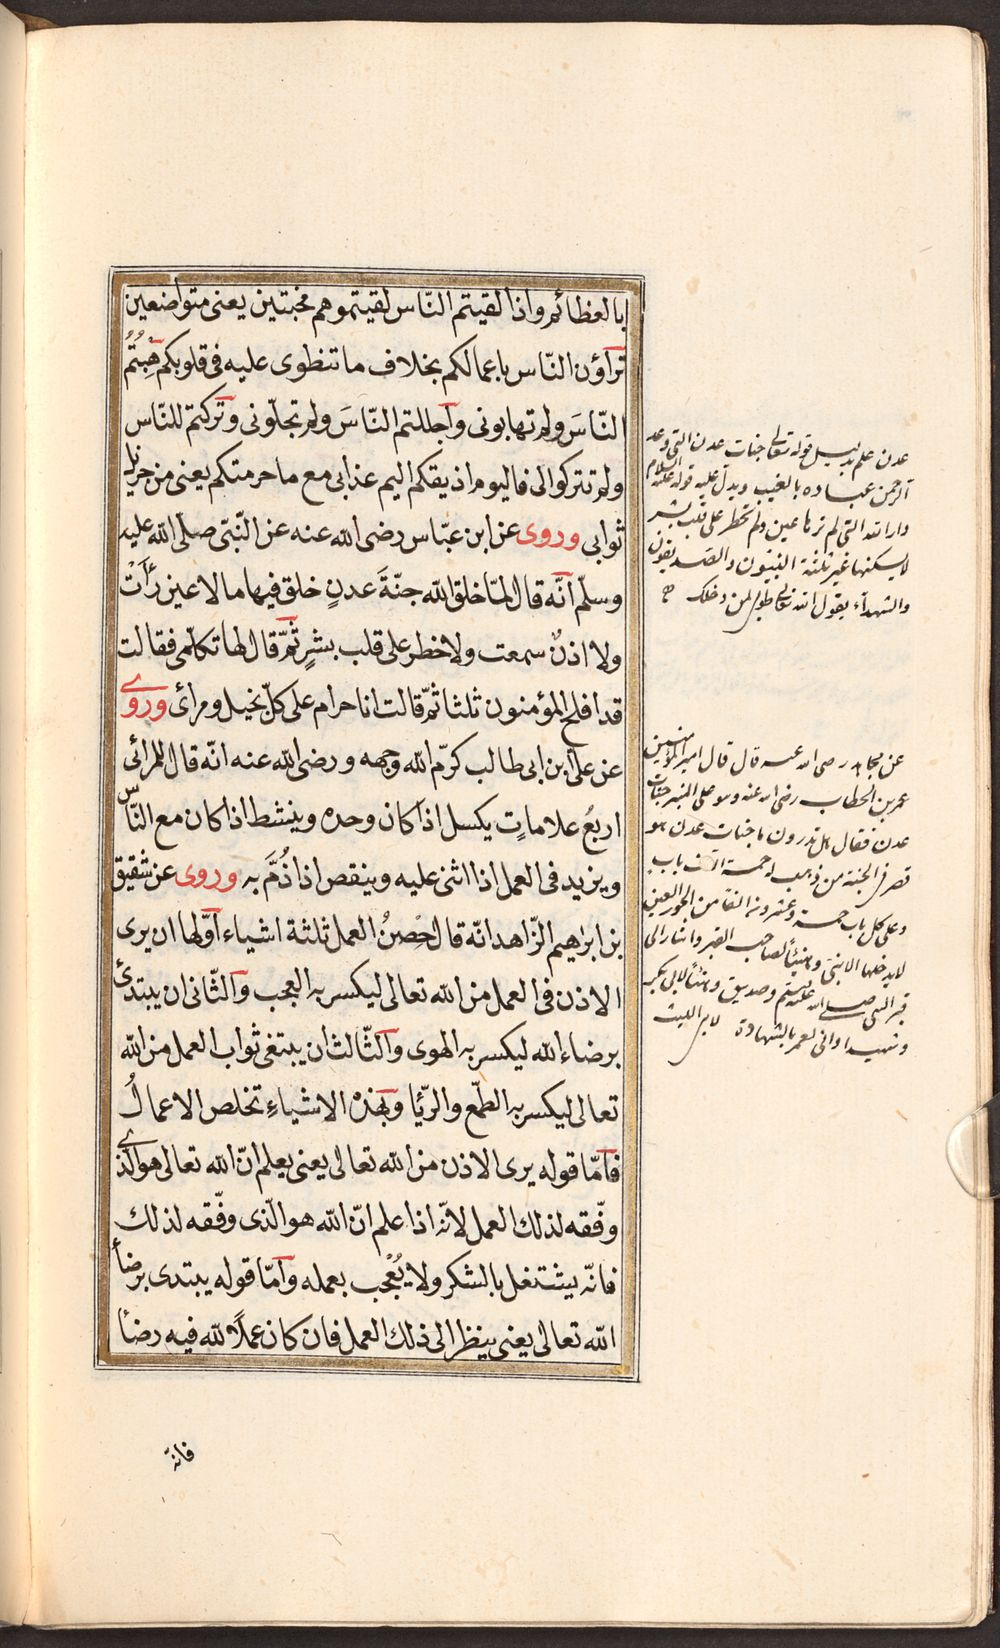 بالعظائم واذا لقيتم النّاس لقيتموهم مخبتين يعنى متواضعين
تراؤن النّاس باعمالكم بخلاف ما تنطوى عليه فى قلوبكم هِبْتُمُ
النّاسَ ولم تهابونى واجللتم النّاسَ ولم تجلّونى وتركتم للنّاس
ولم تتركوا لى فاليوم اذيقكم اليم عذابى مع ما حرمتكم يعنى من جزيل
ثوابى وروى عن ابن عبّاس رضى الله عنه عن النّبىّ صلّى الله عليه
وسلّم انّه قال لمّا خلق الله جنّةَ عدنٍ خلق فيها ما لا عين رأَتْ
ولا اذنٌ سمعت ولا خطر على قلب بشرٍ ثمّ قال لها تكلّمى فقالت
قد افلح المؤمنون ثلثا ثمّ قالت انا حرام على كلّ بخيل ومرائ وروى
عن علىّ بن ابى طالب كرّم الله وجهه ورضى الله عنه انّه قال للمرائى
اربعُ علاماتٍ يكسل اذا كان وحده وينشط اذا كان مع النّاس
ويزيد فى العمل اذا اثنى عليه وينقص اذا ذُمَّ به وروى عن شقيق
بن ابراهيم الزّاهد انّه قال حْصنُ العمل ثلثة اشياء اوّلها ان يرى
الاذن فى العمل من الله تعالى ليكسر به العجب والثّانى ان يبتدئ
برضاء الله ليكسر به الهوى والثّالث ان يبتغى ثواب العمل من الله
تعالى ليكسر به الطّمع والرّيا وبهذه الاشياءِ تخلص الاعمالُ
فامّا قوله يرى الاذن من الله تعالى يعنى يعلم انّ الله تعالى هو الّذى
وفّقه لذلك العمل لانّه اذا علم انّ الله هو الّذى وفّقه لذلك
فانّه يشتغل بالشكر ولا يُعْجب بعمله وامّا قوله يبتدى برضاء
الله تعالى يعنى ينظر الى ذلك العمل فان كان عملًا لله فيه رضاء
فانّه
عدن علم بدليل قوله تعالى جنات عدن التى وعد
الرحمن عباده بالغيب ويدل عليه قوله عليه السلام
دار الله التى لم ترها عين ولم تخطر على قلب بشر
لا يسكنها غير ثلثة النبيون والصديقون
والشهداء يقول الله تعالى طوبى لمن دخلك
عن مجاهد رضى الله عنه قال قال امير المؤمنين
عمر بن الخطاب رضى الله عنه وهو على المنبر جنات
عدن فقال هل تدرون ما جنات عدن هو
قصر فى الجنة من ذهب له خمسة الاف باب
وعلى كل باب خمسة وعشرون الفا من الحور العين
لا يدخلها الا نبى وهنيئا لصاحب القبر واشار الى
قبر النبى صلى الله عليه وسلم وصديق وهنيئا لابى بكر
وشهيد وانى لعمر بالشهادة لابى الليث